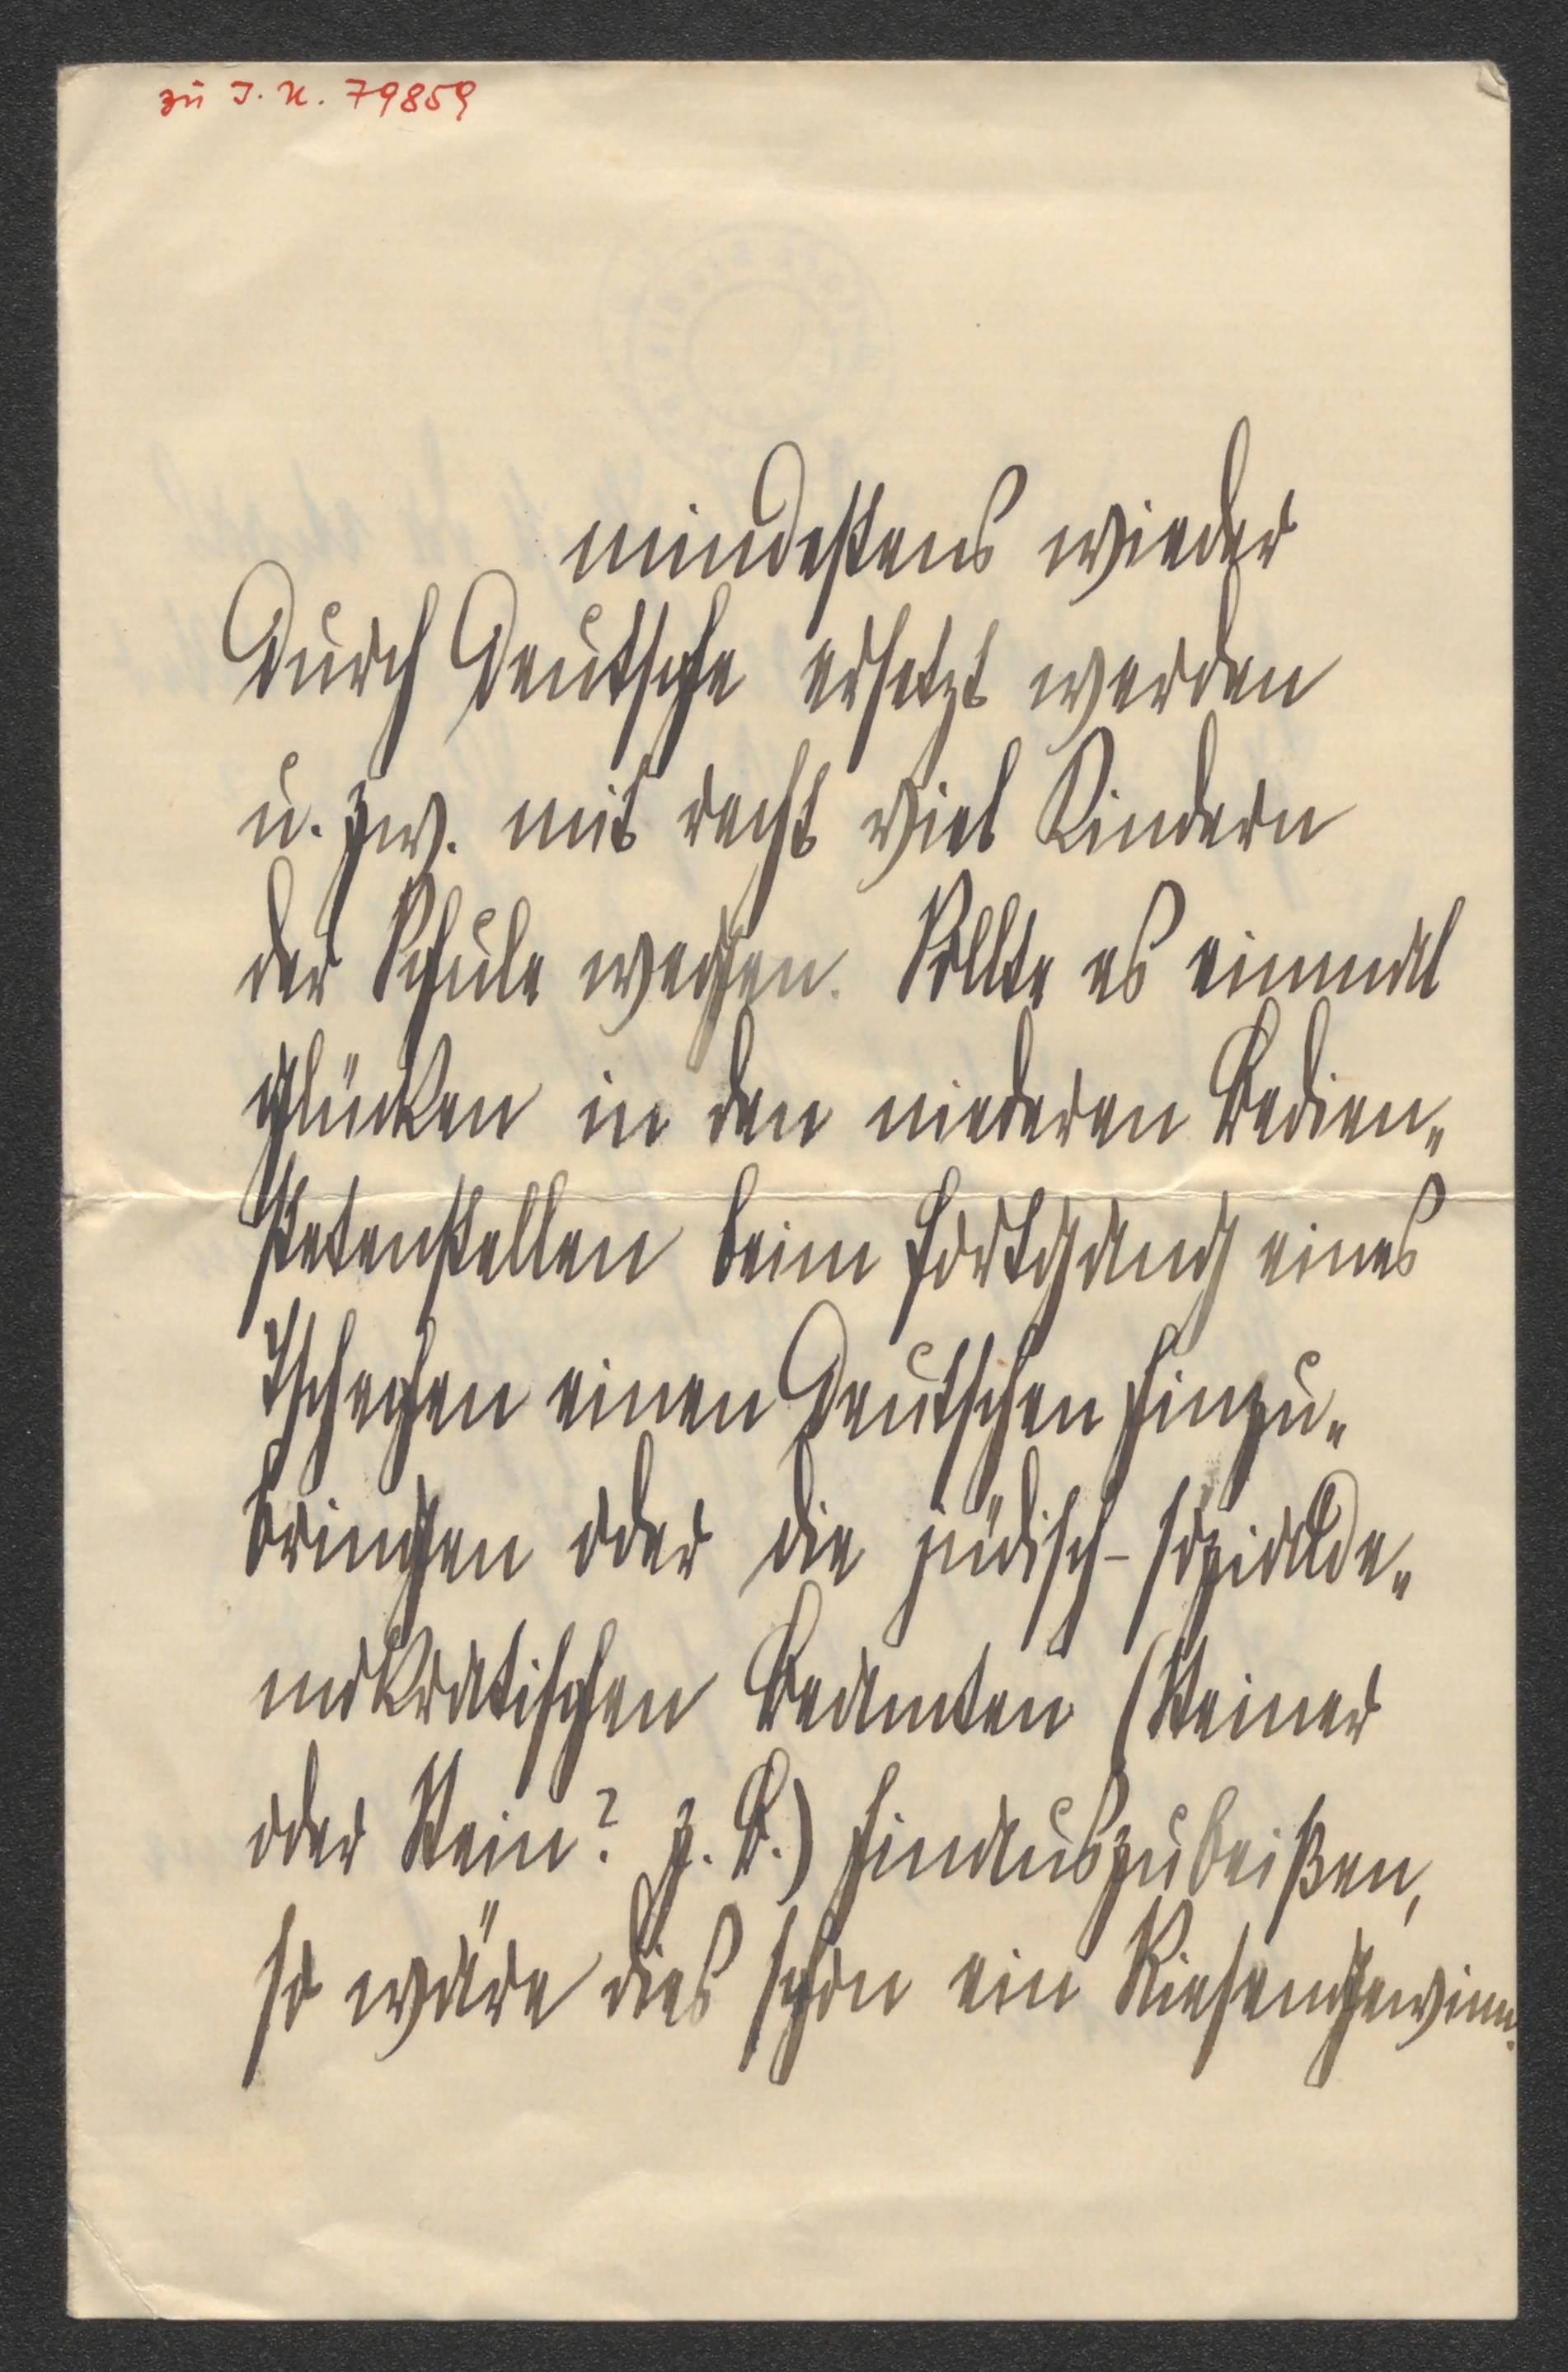 zu I. N. 79859
mindestens wieder
durch Deutsche ersetzt werden
u. zw. mit recht viel Kindern
der Schule wegen. Sollte es einmal
glücken in den niederen Bedien„
stetenstellen beim Fortgang eines
Tschechen einen Deutschen hinzu„
bringen oder die jüdisch-sozialde„
mokratischen Beamten (Steiner
oder Stein? z. B.) hinauszubeißen,
so wäre dies schon ein Riesengewinn.